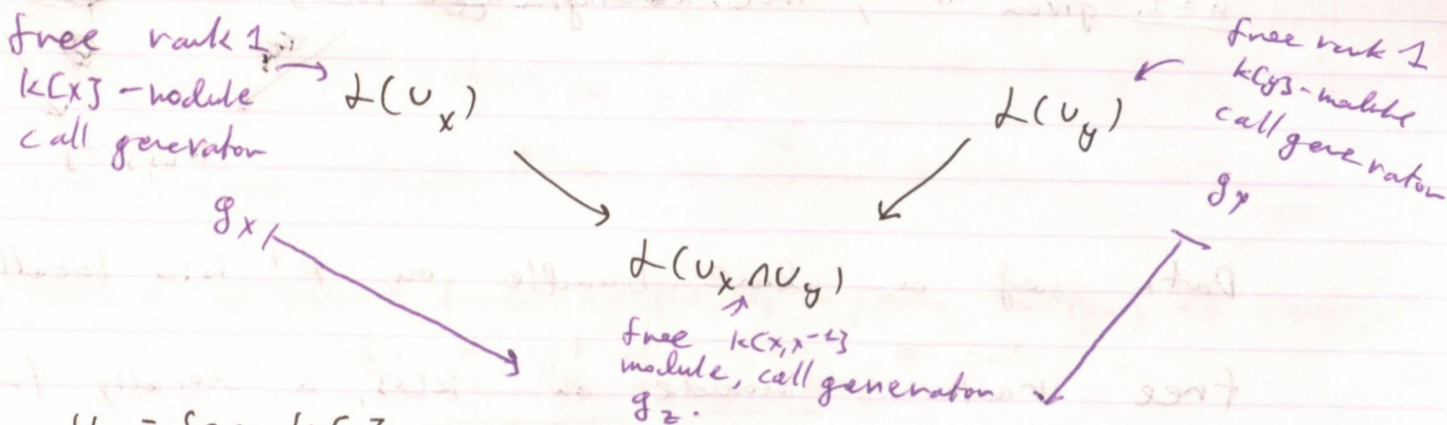 free rank 1
k[x]-module
call generator
g_x
ℒ(U_x)
ℒ(U_y)
free rank 1
k[y]-module
call generator
g_y
ℒ(U_x ∩ U_y)
free k[x, x⁻¹]
module, call generator
g_z.